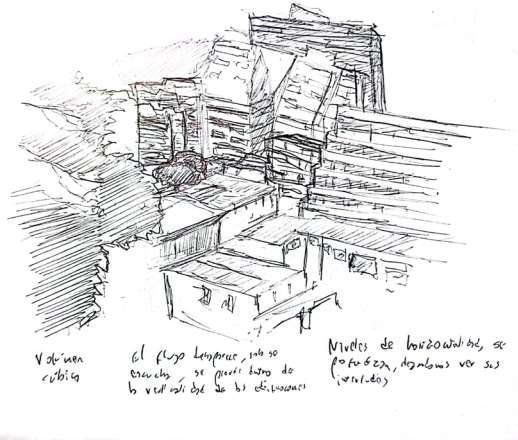 Volúmen
cúbico
El flujo desaparece, solo se
escucha, se pierde dentro de
la verticalidad de las
Niveles de horizontalidad, se
dejandonos ver sus